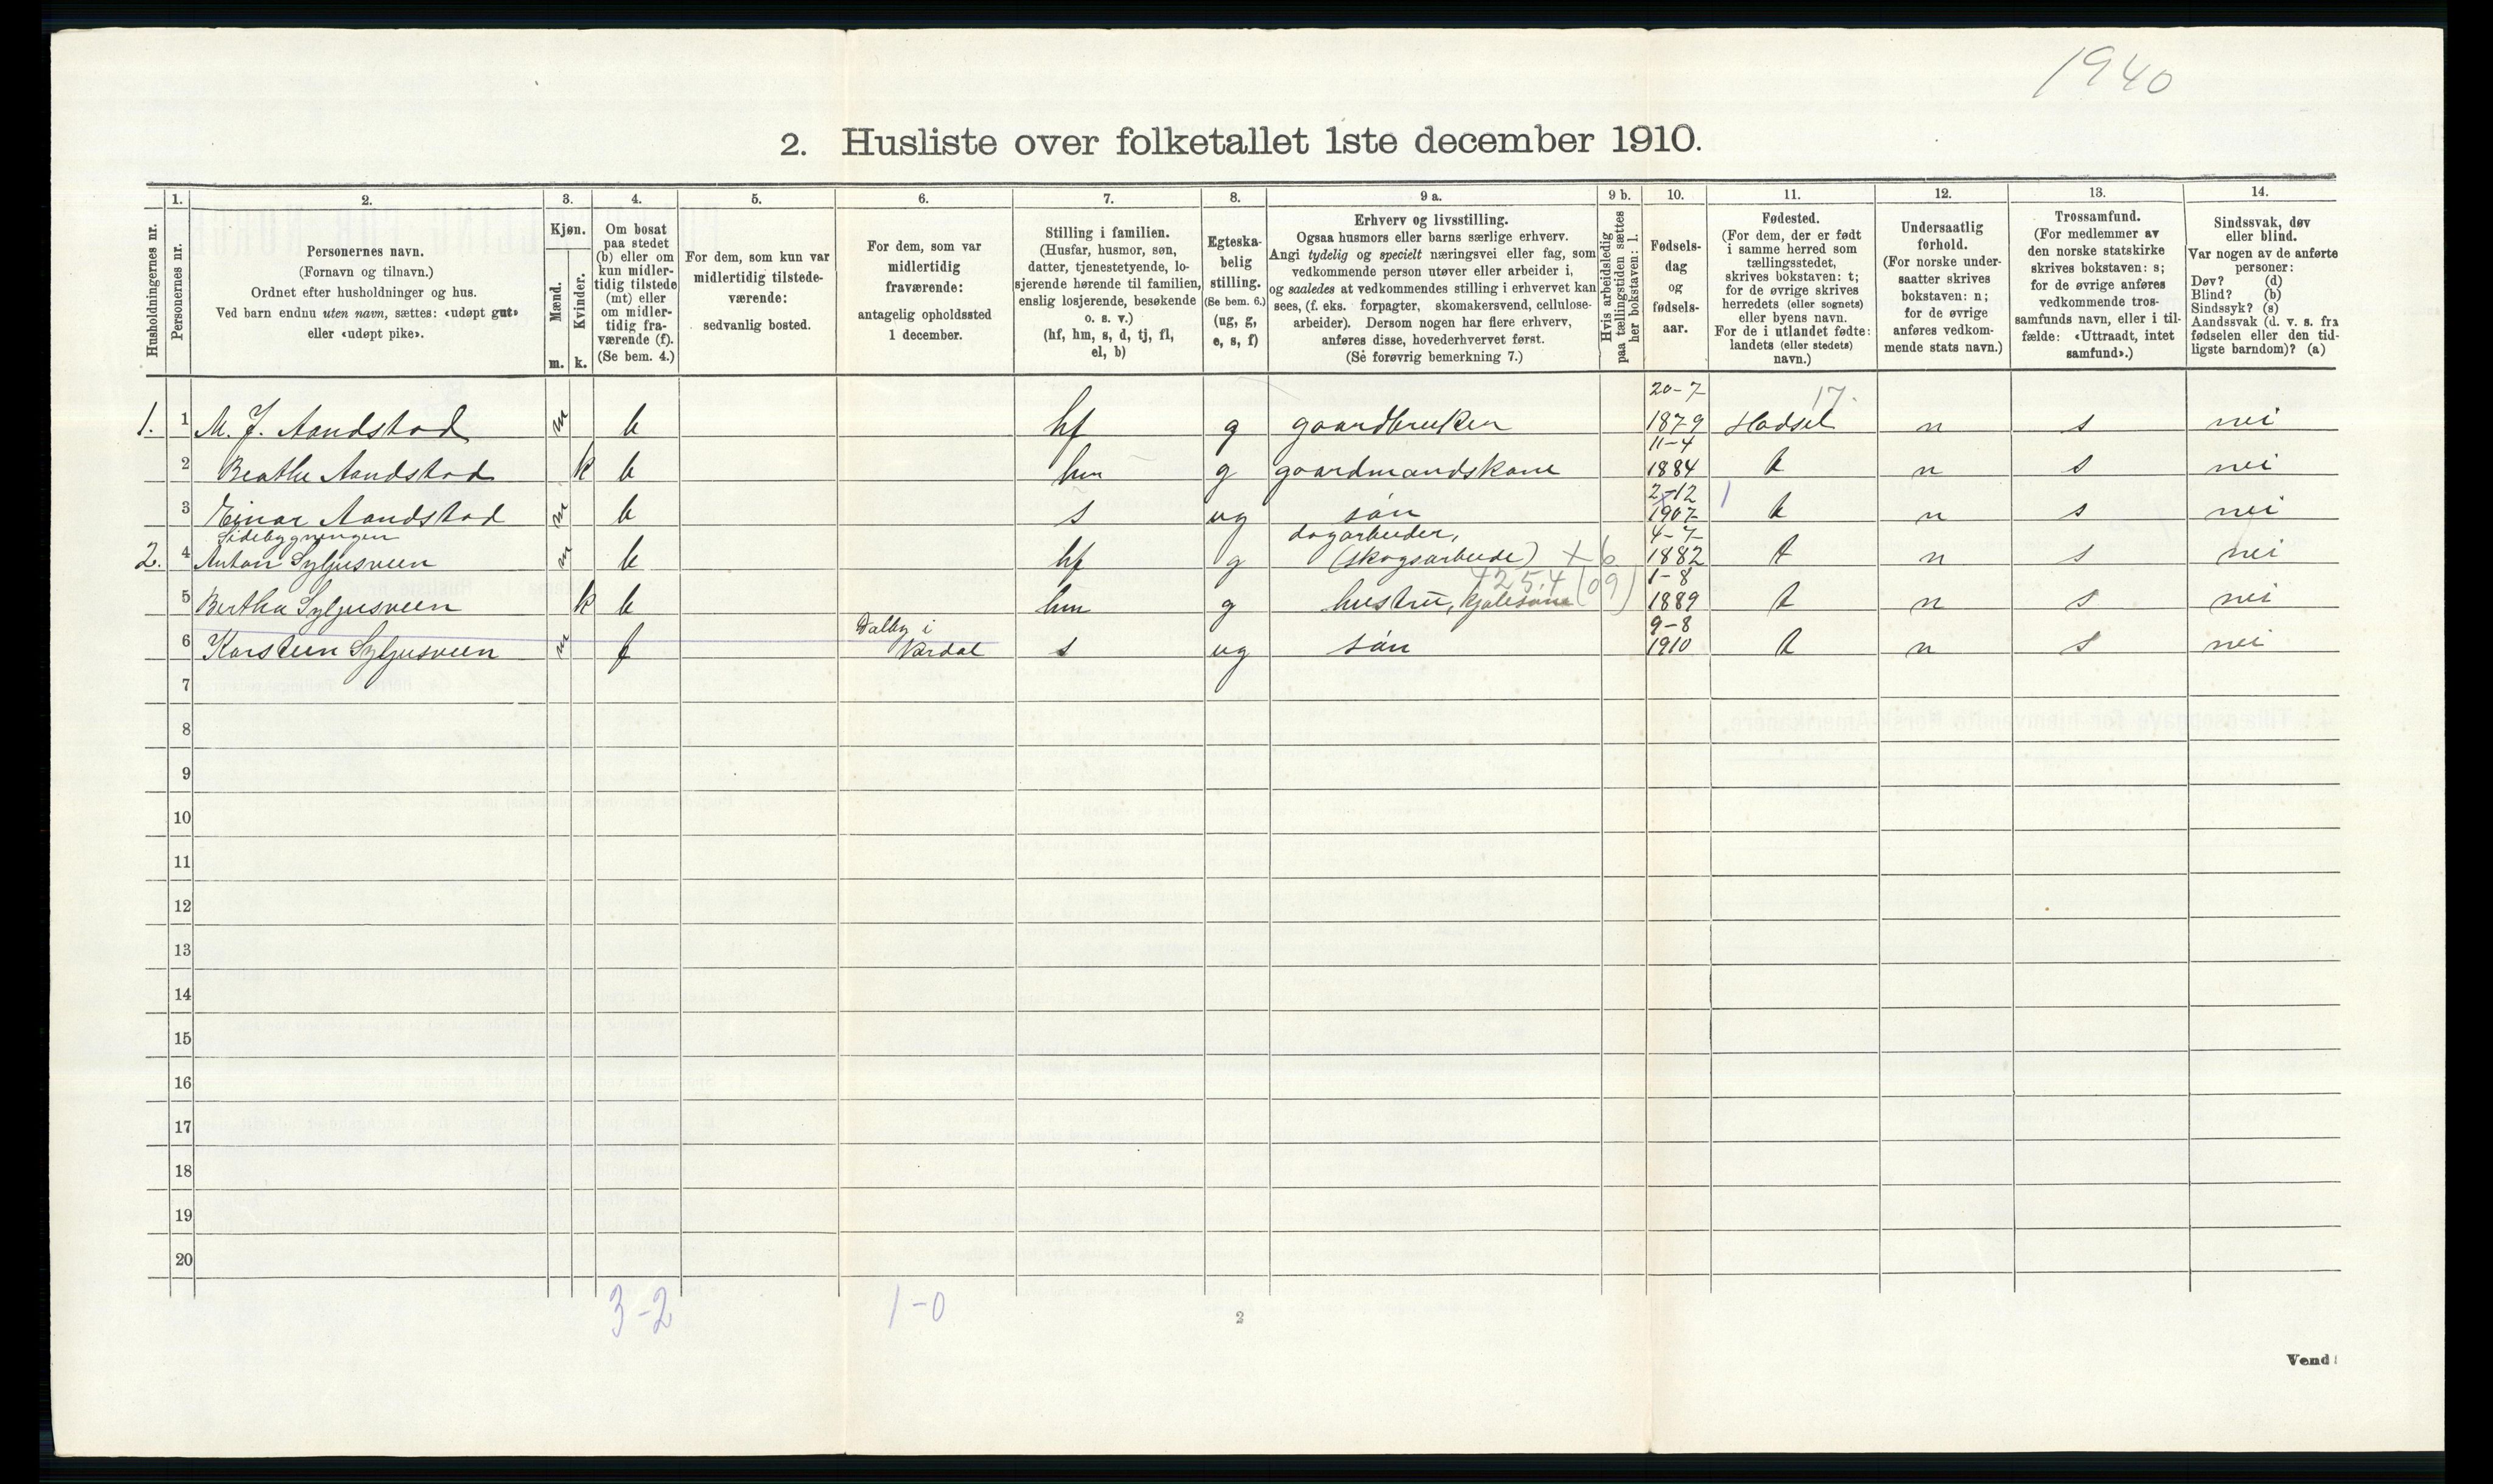 1940
2. Husliste over folketallet 1ste december 1910.
Husholdningernes nr.
1.
Personernes nr.
2.
Personernes navn.
(Fornavn og tilnavn.)
Ordnet efter husholdninger og hus.
Ved barn endnu uten navn, sættes: «udøpt gut»
eller «udøpt pike».
3.
Kjøn.
Mænd.
Kvinder.
m. k.
4.
Om bosat
paa stedet
(b) eller om
kun midler-
tidig tilstede
(mt) eller
om midler-
tidig fra-
værende (f).
(Se bem. 4.)
5.
For dem, som kun var
midlertidig tilstede-
værende:
sedvanlig bosted.
6.
For dem, som var
midlertidig
fraværende:
antagelig opholdssted
1 december.
7.
Stilling i familien.
(Husfar, husmor, søn,
datter, tjenestetyende, lo-
sjerende hørende til familien,
enslig losjerende, besøkende
o. s. v.)
(hf, hm, s, d, tj, fl,
el, b)
8.
Egteska-
belig
stilling.
(Se bem. 6.)
(ug, g,
e, s, f)
9 a.
Erhverv og livsstilling.
Ogsaa husmors eller barns særlige erhverv.
Angi tydelig og specielt næringsvei eller fag, som
vedkommende person utøver eller arbeider i,
og saaledes at vedkommendes stilling i erhvervet kan
sees, (f. eks. forpagter, skomakersvend, cellulose-
arbeider). Dersom nogen har flere erhverv,
anføres disse, hovederhvervet først.
(Se forøvrig bemerkning 7.)
9 b.
Hvis arbeidsledig
paa tællingstiden sættes
her bokstaven: l.
10.
Fødsels-
dag
og
fødsels-
aar.
11.
Fødested.
(For dem, der er født
i samme herred som
tællingsstedet,
skrives bokstaven: t;
for de øvrige skrives
herredets (eller sognets)
eller byens navn.
For de i utlandet fødte:
landets (eller stedets)
navn.)
12.
Undersaatlig
forhold.
(For norske under-
saatter skrives
bokstaven: n;
for de øvrige
anføres vedkom-
mende stats navn.)
13.
Trossamfund.
(For medlemmer av
den norske statskirke
skrives bokstaven: s;
for de øvrige anføres
vedkommende tros-
samfunds navn, eller i til-
fælde: «Uttraadt, intet
samfund».)
14.
Sindssvak, døv
eller blind.
Var nogen av de anførte
personer:
Døv? (d)
Blind? (b)
Sindssyk? (s)
Aandssvak (d. v. s. fra
fødselen eller den tid-
ligste barndom)? (a)
20-7 17.
1. 1 M. J. Aandstad m b hf g gaardbruker 1879 Hadsel n s nei
11-4
2 Beathe Aandstad k b hm g gaardmandskone 1884 t n s nei
2-12 1
3 Einar Aandstad m b s ug søn 1907 t n s nei
Sidebygningen dagarbeider, 4-7
2. 4 Anton Syljusveen m b hf g (skogsarbeide) + 6 1882 t n s nei
1-8
5 Bertha Syljusveen k b hm g hustru, kjolesøm (09) 1889 t n s nei
Dalby i 9-8
6 Karsteen Syljusveen m f Vardal s ug søn 1910 t n s nei
7
8
9
10
11
12
13
14
15
16
17
18
19
20
3-2 1-0
2
Vend!